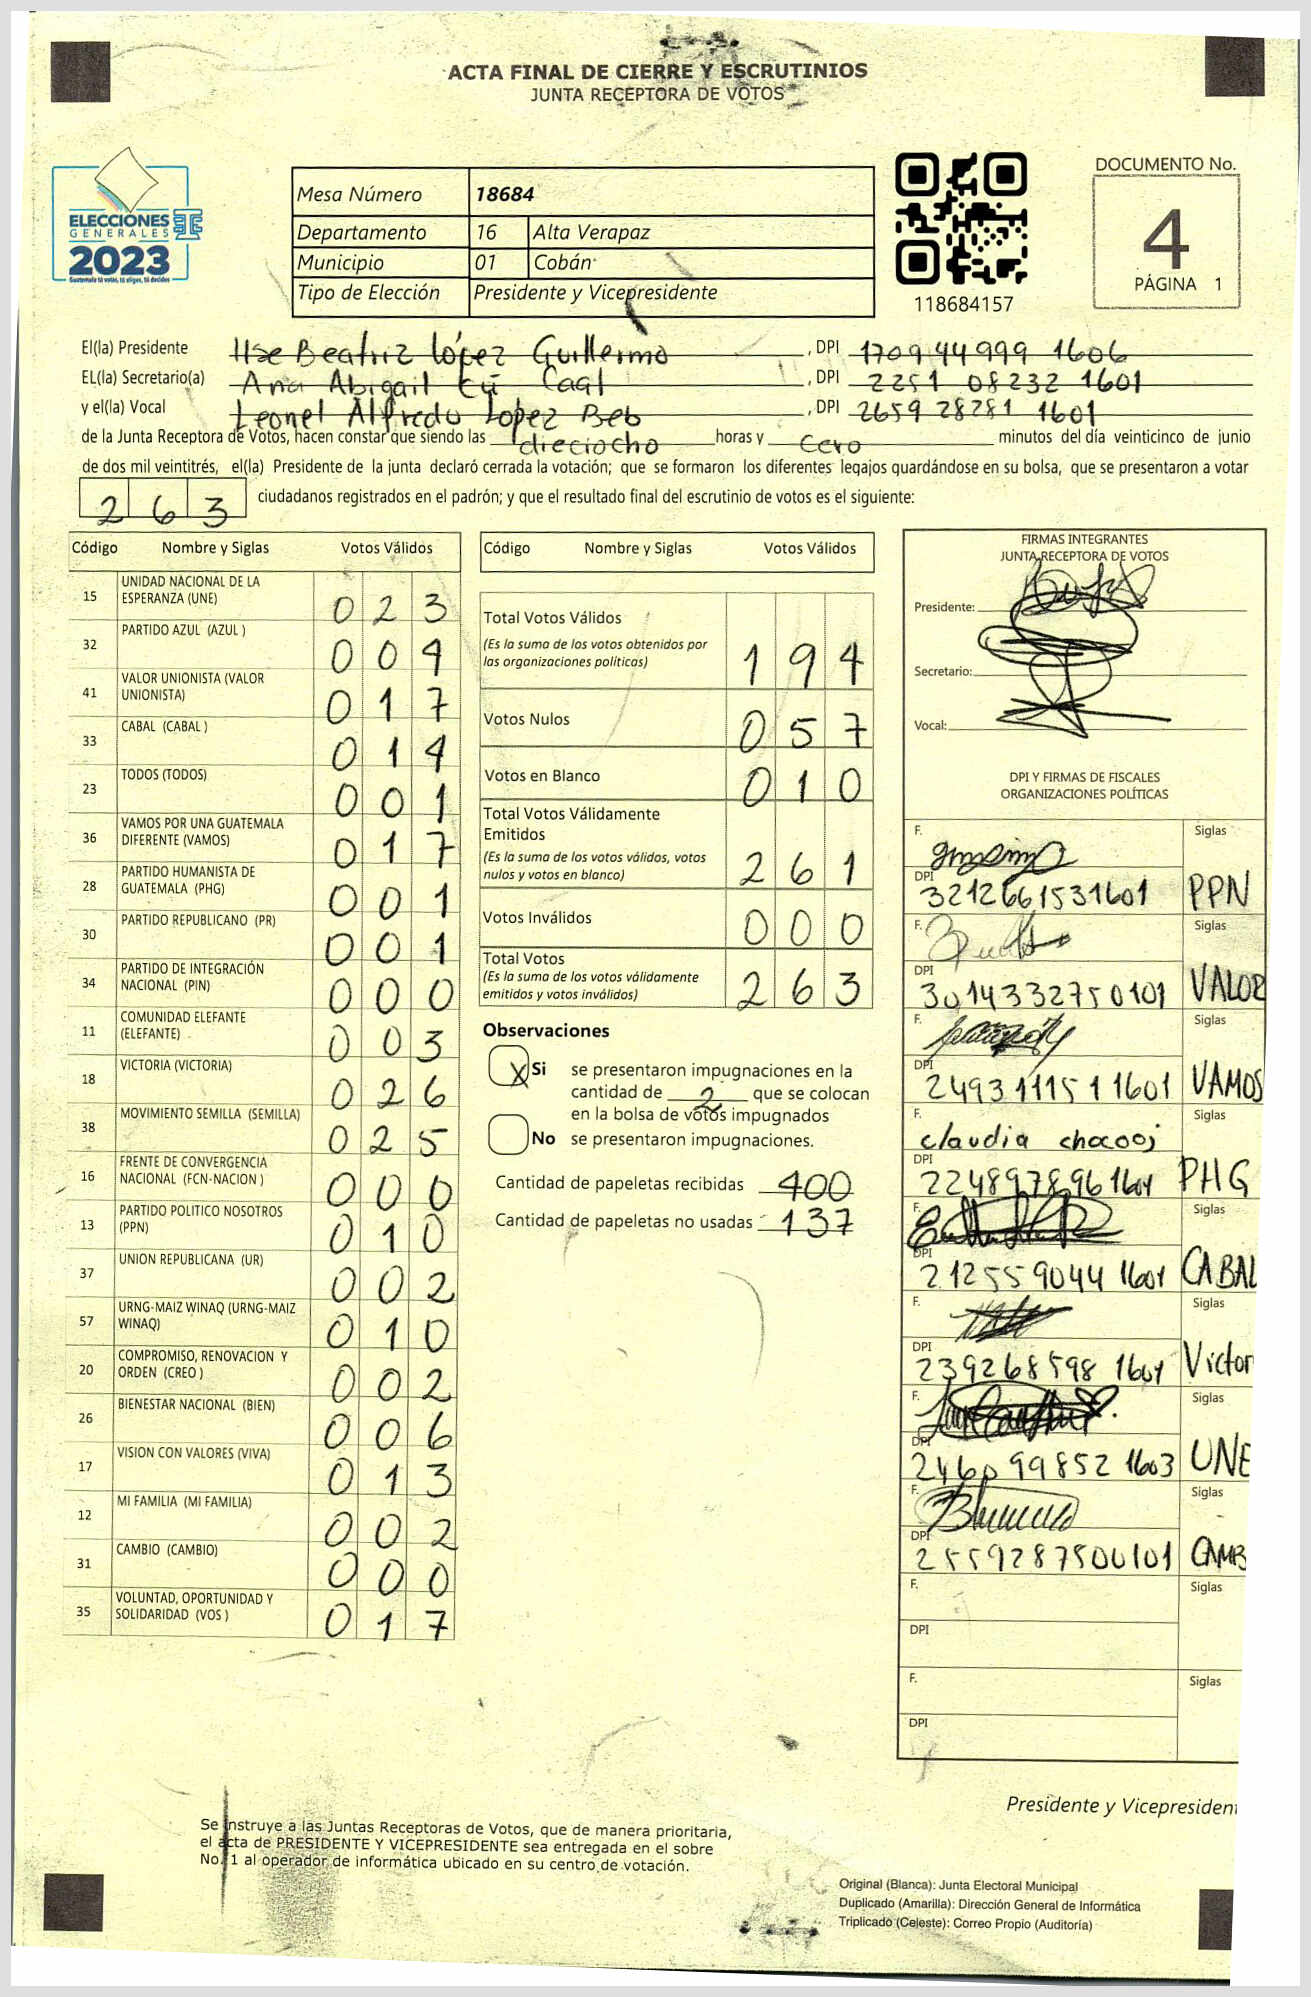 ACTA FINAL DE CIERRE Y ESCRUTINIOS
JUNTA RECEPTORA DE VOTOS
ELECCIONES
GENERALES
2023
Guatemala tú votas, tú eliges, tú decides
Mesa Número 18684
Departamento 16 Alta Verapaz
Municipio 01 Cobán
Tipo de Elección Presidente y Vicepresidente
118684157
DOCUMENTO No.
4
PÁGINA 1
El(la) Presidente Ilse Beatriz López Guillermo, DPI 1709 44999 1606
EL(la) Secretario(a) Ana Abigail Cú Caal, DPI 2251 08232 1601
y el(la) Vocal Leonel Alfredo Lopez Beb, DPI 2659 28281 1601
de la Junta Receptora de Votos, hacen constar que siendo las dieciocho horas y cero minutos del día veinticinco de junio
de dos mil veintitrés, el(la) Presidente de la junta declaró cerrada la votación; que se formaron los diferentes legajos guardándose en su bolsa, que se presentaron a votar
263 ciudadanos registrados en el padrón; y que el resultado final del escrutinio de votos es el siguiente:
Código Nombre y Siglas Votos Válidos
15 UNIDAD NACIONAL DE LA ESPERANZA (UNE) 023
32 PARTIDO AZUL (AZUL ) 004
41 VALOR UNIONISTA (VALOR UNIONISTA) 017
33 CABAL (CABAL ) 014
23 TODOS (TODOS) 001
36 VAMOS POR UNA GUATEMALA DIFERENTE (VAMOS) 017
28 PARTIDO HUMANISTA DE GUATEMALA (PHG) 001
30 PARTIDO REPUBLICANO (PR) 001
34 PARTIDO DE INTEGRACIÓN NACIONAL (PIN) 000
11 COMUNIDAD ELEFANTE (ELEFANTE) 003
18 VICTORIA (VICTORIA) 026
38 MOVIMIENTO SEMILLA (SEMILLA) 025
16 FRENTE DE CONVERGENCIA NACIONAL (FCN-NACION ) 000
13 PARTIDO POLITICO NOSOTROS (PPN) 010
37 UNION REPUBLICANA (UR) 002
57 URNG-MAIZ WINAQ (URNG-MAIZ WINAQ) 010
20 COMPROMISO, RENOVACION Y ORDEN (CREO ) 002
26 BIENESTAR NACIONAL (BIEN) 006
17 VISION CON VALORES (VIVA) 013
12 MI FAMILIA (MI FAMILIA) 002
31 CAMBIO (CAMBIO) 000
35 VOLUNTAD, OPORTUNIDAD Y SOLIDARIDAD (VOS ) 017
Código Nombre y Siglas Votos Válidos
Total Votos Válidos
(Es la suma de los votos obtenidos por
las organizaciones políticas) 194
Votos Nulos 057
Votos en Blanco 010
Total Votos Válidamente
Emitidos
(Es la suma de los votos válidos, votos
nulos y votos en blanco) 261
Votos Inválidos 000
Total Votos
(Es la suma de los votos válidamente
emitidos y votos inválidos) 263
Observaciones
X Si se presentaron impugnaciones en la
cantidad de 2 que se colocan
en la bolsa de votos impugnados
No se presentaron impugnaciones.
Cantidad de papeletas recibidas 400
Cantidad de papeletas no usadas 137
FIRMAS INTEGRANTES
JUNTA RECEPTORA DE VOTOS
Presidente:
Secretario:
Vocal:
DPI Y FIRMAS DE FISCALES
ORGANIZACIONES POLÍTICAS
F. Siglas
DPI 3212661531601 PPN
F. Siglas
DPI 3014332750101 VALOR
F. Siglas
DPI 2493111511601 VAMOS
F. claudia chocooj Siglas
DPI 2248978961601 PHG
F. Siglas
DPI 212559044 1601 CABAL
F. Siglas
DPI 239268598 1601 Victor
F. Siglas
DPI 2460 99852 1603 UNE
F. Siglas
DPI 2559287500101 CAMB
F. Siglas
DPI
F. Siglas
DPI
Presidente y Vicepresident
Se instruye a las Juntas Receptoras de Votos, que de manera prioritaria,
el acta de PRESIDENTE Y VICEPRESIDENTE sea entregada en el sobre
No. 1 al operador de informática ubicado en su centro de votación.
Original (Blanca): Junta Electoral Municipal
Duplicado (Amarilla): Dirección General de Informática
Triplicado (Celeste): Correo Propio (Auditoría)